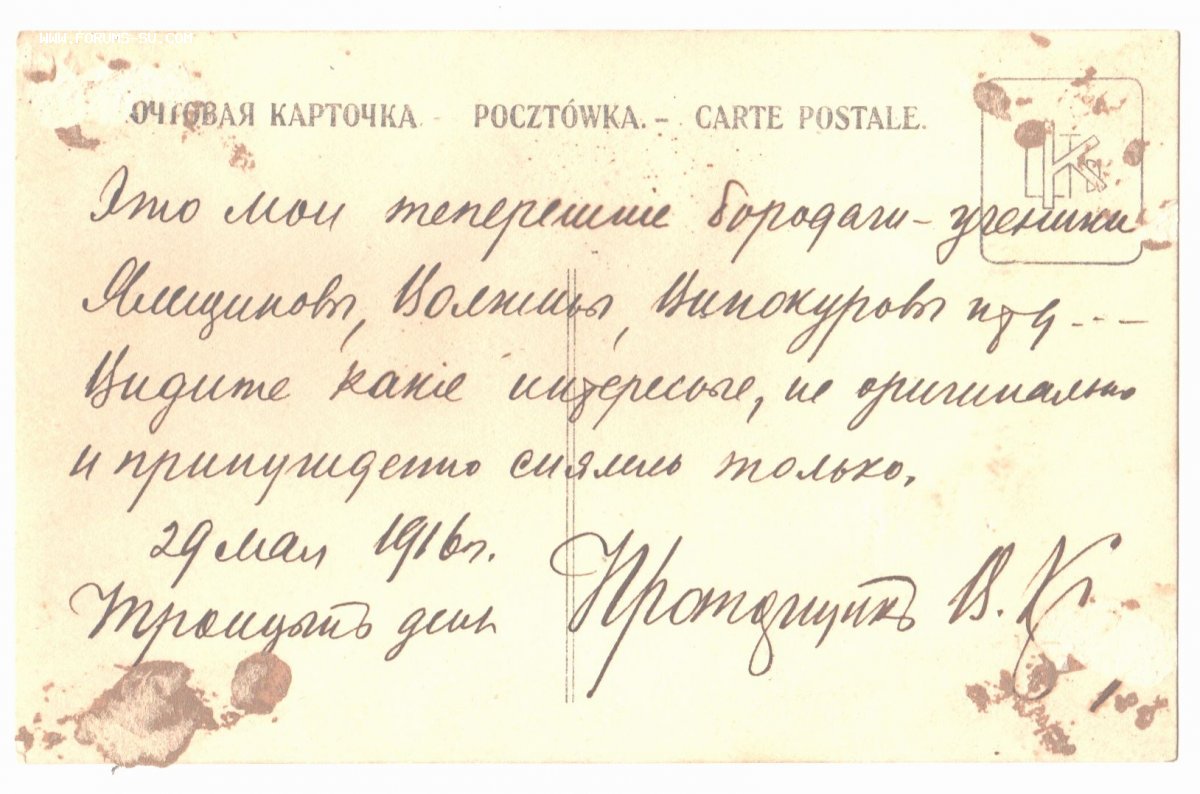 WWW.FORUMS-SU.COM
ОЧТОВАЯ КАРТОЧКА - POCZTÓWKA. - CARTE POSTALE.
Это мои теперешние бородачи - ученики
Ямщиковы, Волжины, Винокуровы и т ч ...
Видите какіе интересные, не оригинально
и принужденно снялись только.
29 мая 1916 г.
день
В. К